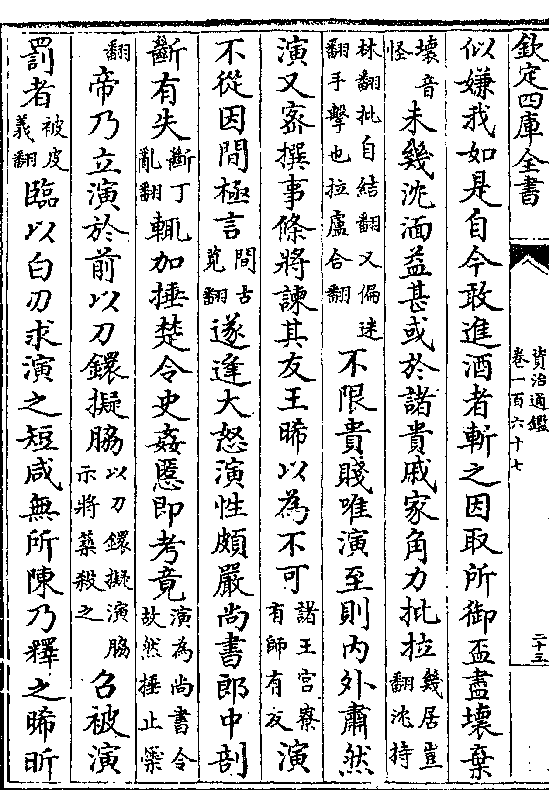 欽定四庫全書
資治通鑑
卷一百六十七
二十五
似嫌我如是自今敢進酒者斬之因取所御盃盡壞棄
壞音怪未幾沈湎益甚或於諸貴戚家角力批拉幾居豈翻沈持
林翻批自結翻又偏迷翻手擊也拉盧合翻不限貴賤唯演至則內外肅然
演又密撰事條將諫其友王晞以為不可諸王宮寮有師有友演
不從因間極言間古莧翻遂逢大怒演性頗嚴尚書郎中剖
斷有失斷丁亂翻輒加捶楚令史姦慝即考竟演為尚書令故然捶止橤
翻帝乃立演於前以刀鐶擬脇以刀鐶擬演脇示將築殺之召被演
罰者被皮義翻臨以白刃求演之短咸無所陳乃釋之晞昕